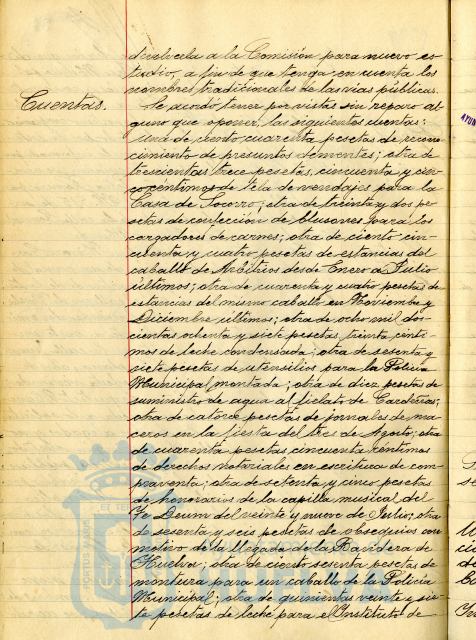 devolverla a la Comisión para nuevo es-
tudio, a fin de que tenga en cuenta los
nombres tradicionales de las vías públicas.
Cuentas. Se acordó tener por vistas sin reparo al-
guno que oponer, las siguientes cuentas:
una de ciento cuarenta pesetas de recono-
cimiento de presuntos dementes; otra de
trescientas trece pesetas, cincuenta y cin-
co centimos de tela de vendajes para la
Casa de Socorro; otra de treinta y dos pe-
setas de confección de blusones para los
cargadores de carnes; otra de ciento cin-
cuenta y cuatro pesetas de estancias del
caballo de Arbitrios desde Enero a Julio
últimos; otra de cuarenta y cuatro pesetas de
estancias del mismo caballo en Noviembre y
Diciembre últimos; otra de ocho mil dos-
cientas ochenta y siete pesetas, treinta cénti-
mos de leche condensada; otra de sesenta y
siete pesetas de utensilios para la Policía
Municipal montada; otra de diez pesetas de
suministro de agua al fielato de Cardeñas;
otra de catorce pesetas de jornales de ma-
ceros en la fiesta del tres de Agosto; otra
de cuarenta pesetas cincuenta céntimos
de derechos notariales en escritura de com-
praventa; otra de setenta y cinco pesetas
de honorarios de la capilla musical del
Te Deum del veinte y nueve de Julio; otra
de sesenta y seis pesetas de obsequios con
motivo de la llegada de la Bandera de
Huelva; otra de ciento sesenta pesetas de
montura para un caballo de la Policía
Municipal; otra de quinientas veinte y sie-
te pesetas de leche para el Instituto de